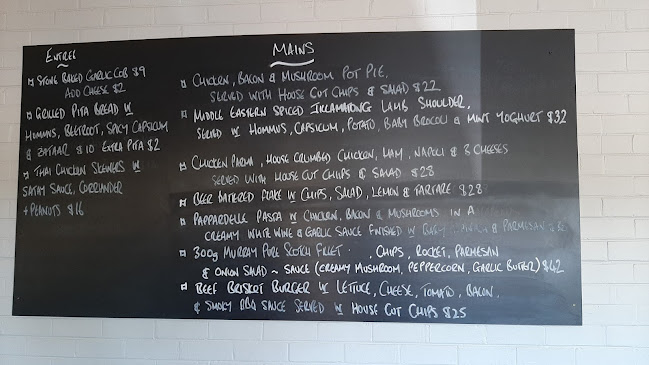 ENTREE
STONE BAKED GARLIC COB $9
ADD CHEESE $2
GRILLED PITA BREAD W
HOMMUS, BEETROOT, SPICY CAPSICUM
& ZATAAR $10 EXTRA PITA $2
THAI CHICKEN SKEWERS W
SATAY SAUCE, CORRIANDER
+ PEANUTS $16
MAINS
CHICKEN, BACON & MUSHROOM POT PIE,
SERVED WITH HOUSE CUT CHIPS & SALAD $22
MIDDLE EASTERN SPICED LAMB SHOULDER,
SERVED W HOMMUS, CAPSICUM, POTATO, BABY BROCOLI & MINT YOGHURT $32
CHICKEN PARMA, HOUSE CRUMBED CHICKEN, HAM, NAPOLI & 3 CHEESES
SERVED WITH HOUSE CUT CHIPS & SALAD $28
BEER BATTERED FLAKE W CHIPS, SALAD, LEMON & TARTARE $28
PAPPARDELLE PASTA W CHICKEN, BACON & MUSHROOMS IN A
CREAMY WHITE WINE & GARLIC SAUCE FINISHED W BABY & PARMESAN
300g MURRAY PURE SCOTCH FILLET CHIPS, ROCKET, PARMESAN
& ONION SALAD ~ SAUCE (CREAMY MUSHROOM, PEPPERCORN, GARLIC BUTTER) $42
BEEF BRISKET BURGER W LETTUCE, CHEESE, TOMATO, BACON,
& SMOKY BBQ SAUCE SERVED W HOUSE CUT CHIPS $25